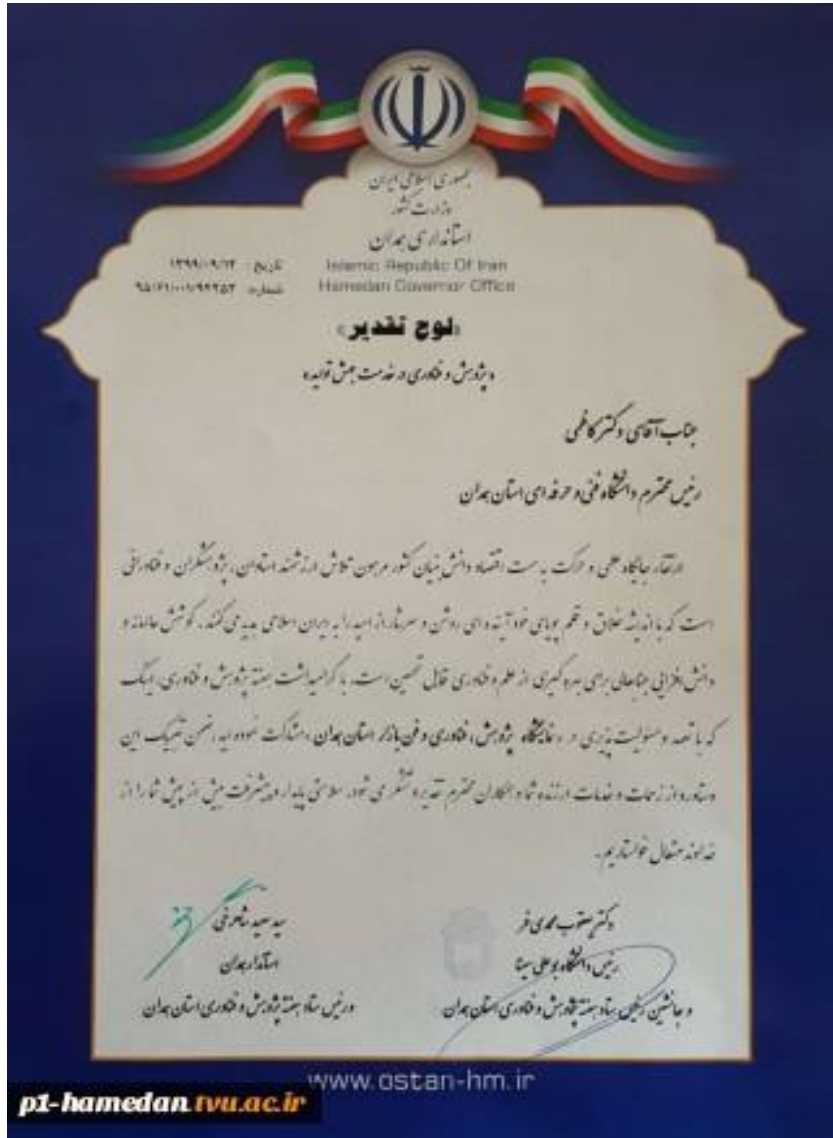 جمهوری اسلامی ایران
وزارت کشور
استانداری همدان
Islamic Republic Of Iran
Hamedan Governor Office
تاریخ : ۱۳۹۹/۰۹/۲۳
شماره :
«لوح تقدیر»
«پژوهش و فناوری در خدمت جهش تولید»
جناب آقای دکتر کاظمی
رئیس محترم دانشگاه فنی و حرفه ای استان همدان
ارتقاء جایگاه علمی و حرکت به سمت اقتصاد دانش بنیان کشور مرهون تلاش ارزشمند استادان، پژوهشگران و فناورانی
است که با اندیشه خلاق و قلم پویای خود آینده ای روشن و سرشار از امید را به ایران اسلامی هدیه می کنند. کوشش عالمانه و
دانش افزایی جنابعالی برای بهره گیری از علم و فناوری قابل تحسین است. با گرامیداشت هفته پژوهش و فناوری، اینک
که با تعهد و مسئولیت پذیری در «نمایشگاه پژوهش، فناوری و فن بازار استان همدان» مشارکت نموده اید، ضمن تبریک این
دستاورد از زحمات و خدمات ارزنده شما و همکاران محترم تقدیر و تشکر می شود. سلامتی پایدار و پیشرفت بیش از پیش شما را از
خداوند متعال خواستاریم.
دکتر یعقوب محمدی فر
رئیس دانشگاه بوعلی سینا
و جانشین رئیس ستاد هفته پژوهش و فناوری استان همدان
سید سعید شاهرخی
استاندار همدان
و رئیس ستاد هفته پژوهش و فناوری استان همدان
www.ostan-hm.ir
p1-hamedan.tvu.ac.ir